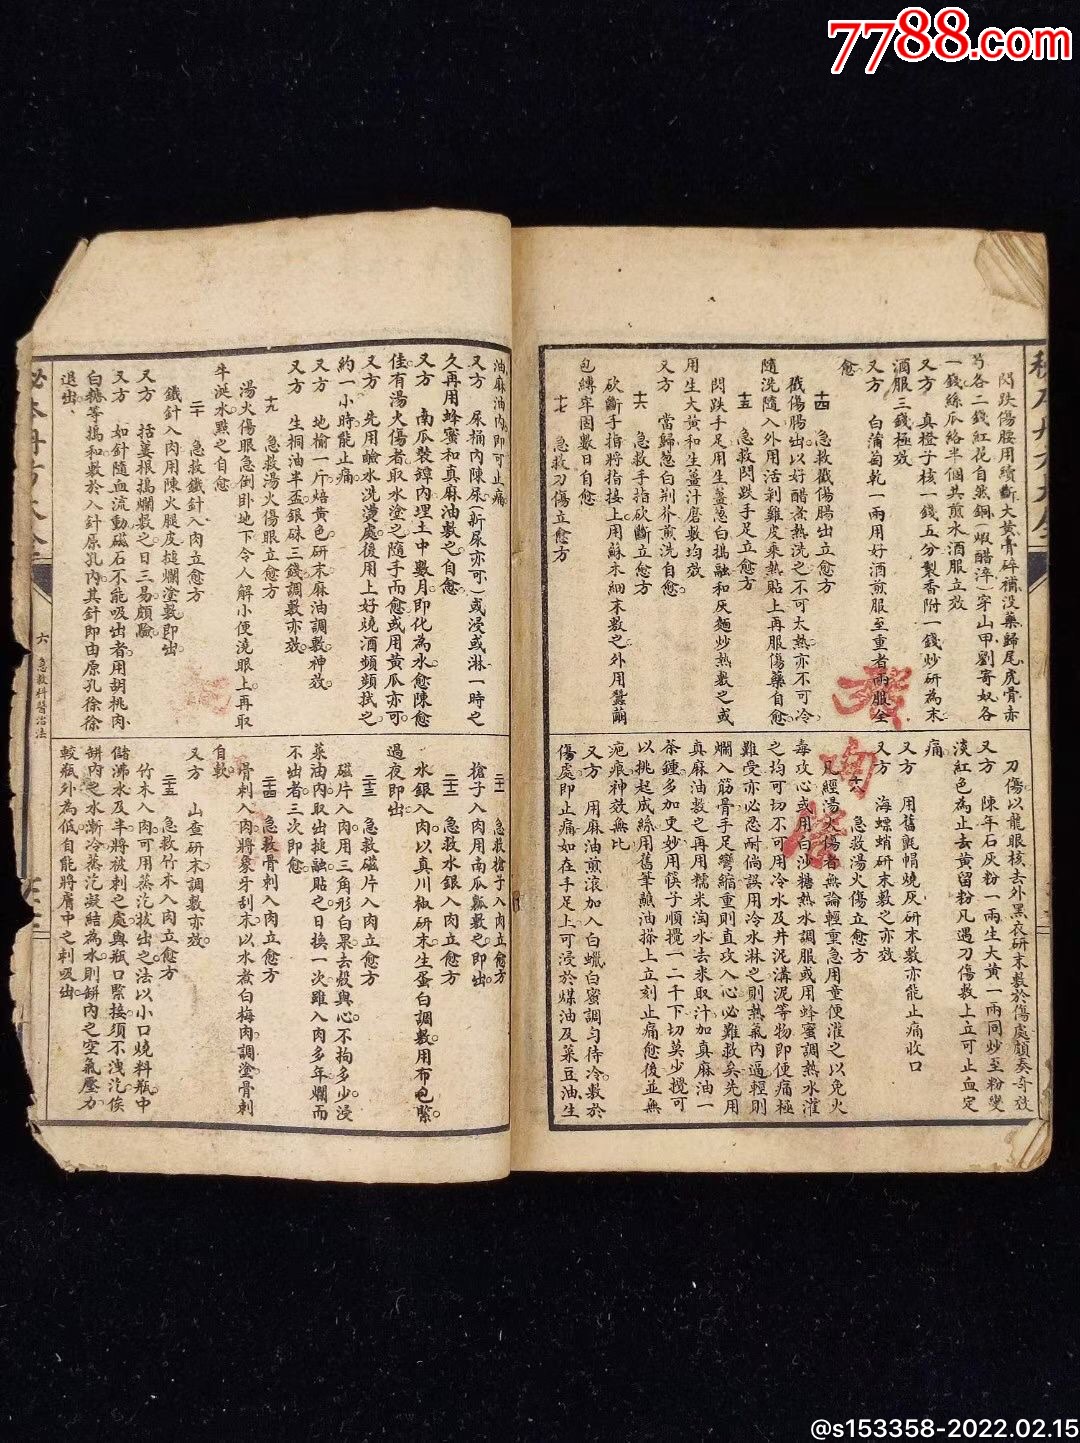 7788.com
閃跌傷腰用續斷大黃骨碎補沒藥歸尾虎骨赤
芍各二錢紅花自然銅(煅醋淬)穿山甲劉寄奴各
一錢絲瓜絡半個共煎水酒服立效
又方　真橙子核一錢五分製香附一錢炒研為末
酒服三錢極效
又方　白蒲萄乾一兩用好酒煎服至重者兩服全
愈
十四　急救戳傷腸出立愈方
戳傷腸出以好醋煮熱洗之不可太熱亦不可冷
隨洗隨入外用活剥雞皮乘熱貼上再服傷藥自愈
十五　急救閃跌手足立愈方
閃跌手足用生薑葱白搗融和灰麵炒熱敷之或
用生大黃和生薑汁磨敷均效
又方　當歸葱白荆芥煎洗自愈
十六　急救手指砍斷立愈方
砍斷手指將指接上用蘇木細末敷之外用蠶繭
包縛牢固數日自愈
十七　急救刀傷立愈方
刀傷以龍眼核去外黑衣研末敷於傷處頗奏奇效
又方　陳年石灰粉一兩生大黃一兩同炒至粉變
淡紅色為止去黃留粉凡遇刀傷敷上立可止血定
痛
又方　用舊氈帽燒灰研末敷亦能止痛收口
又方　海螵蛸研末敷之亦效
十八　急救湯火傷立愈方
凡經湯火傷者無論輕重急用童便灌之以免火
毒攻心或用白沙糖熱水調服或用蜂蜜調熱水灌
之均可切不可用冷水及井泥溝泥等物即使痛極
難受亦必忍耐倘誤用冷水淋之則熱氣內逼輕則
爛入筋骨手足彎縮重則直攻入心必難救矣先用
真麻油敷之再用糯米淘水去米取汁加真麻油一
茶鍾多加更妙用筷子順攪一二千下切莫少攪可
以挑起成絲用舊筆蘸油搽上立刻止痛愈後並無
疤痕神效無比
又方　用麻油煎滾加入白蠟白蜜調勻待冷敷於
傷處即止痛如在手足上可浸於煤油及菜豆油生
油麻油內即可止痛
又方　尿桶內陳尿(新尿亦可)或浸或淋一時之
久再用蜂蜜和真麻油敷之自愈
又方　南瓜裝罈內埋土中數月即化為水愈陳愈
佳有湯火傷者取水塗之隨手而愈或用黃瓜亦可
又方　先用鹼水洗燙處後用上好燒酒頻頻拭之
約一小時能止痛
又方　地榆一斤焙黃色研末麻油調敷神效
又方　生桐油半盃銀硃三錢調敷亦效
十九　急救湯火傷眼立愈方
湯火傷眼急倒卧地下令人解小便澆眼上再取
牛涎水點之自愈
二十　急救鐵針入肉立愈方
鐵針入肉用陳火腿皮搥爛塗敷即出
又方　括蔞根搗爛敷之日三易頗驗
又方　如針隨血流動磁石不能吸出者用胡桃肉
白糖等搗和敷於入針原孔內其針即由原孔徐徐
退出
二十一　急救槍子入肉立愈方
槍子入肉用南瓜瓤敷之即出
二十二　急救水銀入肉立愈方
水銀入肉以真川椒研末生蛋白調敷用布包緊
過夜即出
二十三　急救磁片入肉立愈方
磁片入肉用三角形白果去殼與心不拘多少浸
菜油內取出搥融貼之日換一次雖入肉多年爛而
不出者三次即愈
二十四　急救骨刺入肉立愈方
骨刺入肉將象牙刮末以水煮白梅肉調塗骨刺
自軟
又方　山查研末調敷亦效
二十五　急救竹木入肉立愈方
竹木入肉可用蒸汽拔出之法以小口燒料瓶中
儲沸水及半將被刺之處與瓶口緊接須不洩汽俟
缾內之水漸冷蒸汽凝結為水則缾內之空氣壓力
較瓶外為低自能將膚中之刺吸出
六　急救科醫治法
@s153358-2022.02.15